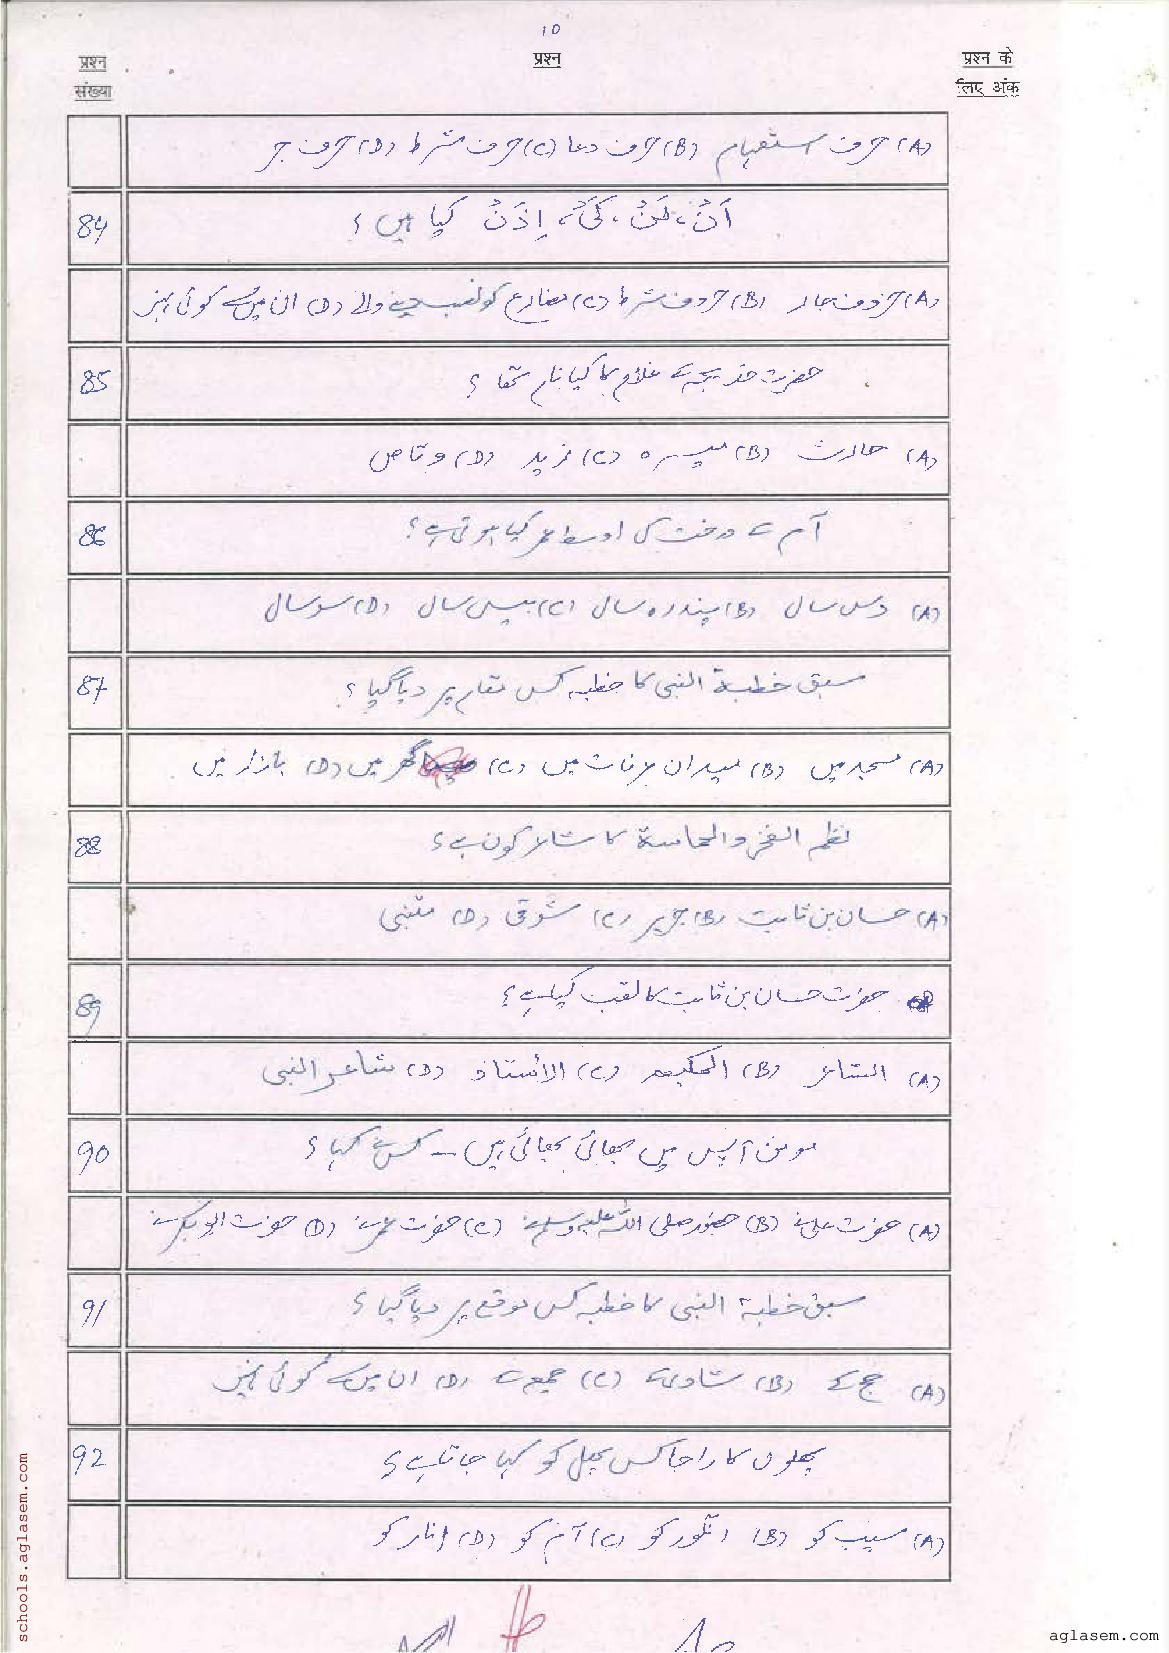 10
प्रश्न संख्या
प्रश्न
प्रश्न के लिए अंक
(A) حرف استفہام (B) حرف دعا (C) حرف شرط (D) حرف جر
84 اَنْ، لَنْ، كَيْ، اِذَنْ کیا ہیں؟
(A) حروف جار (B) حروف شرط (C) مضارع کو نصب دینے والے (D) ان میں سے کوئی نہیں
85 حضرت خدیجہ کے غلام کا کیا نام تھا؟
(A) حارث (B) میسرہ (C) زید (D) وقاص
86 آم کے درخت کی اوسط عمر کیا ہوتی ہے؟
(A) دس سال (B) پندرہ سال (C) بیس سال (D) سو سال
87 سبق خطبۃ النبی کا خطبہ کس مقام پر دیا گیا؟
(A) مسجد میں (B) میدان عرفات میں (C) گھر میں (D) بازار میں
88 نظم الفخر والحماسة کا شاعر کون ہے؟
(A) حسان بن ثابت (B) جریر (C) شوقی (D) متنبی
89 حضرت حسان بن ثابت کا لقب کیا ہے؟
(A) الشاعر (B) الحکیم (C) الأستاذ (D) شاعر النبی
90 مومن آپس میں بھائی بھائی ہیں - کس نے کہا؟
(A) حضرت علی نے (B) حضور صلی اللہ علیہ وسلم نے (C) حضرت عمر نے (D) حضرت ابوبکر نے
91 سبق خطبۃ النبی کا خطبہ کس موقع پر دیا گیا؟
(A) حج کے (B) شادی کے (C) جمعہ کے (D) ان میں سے کوئی نہیں
92 پھلوں کا راجا کس پھل کو کہا جاتا ہے؟
(A) سیب کو (B) انگور کو (C) آم کو (D) انار کو
schools.aglasem.com
aglasem.com